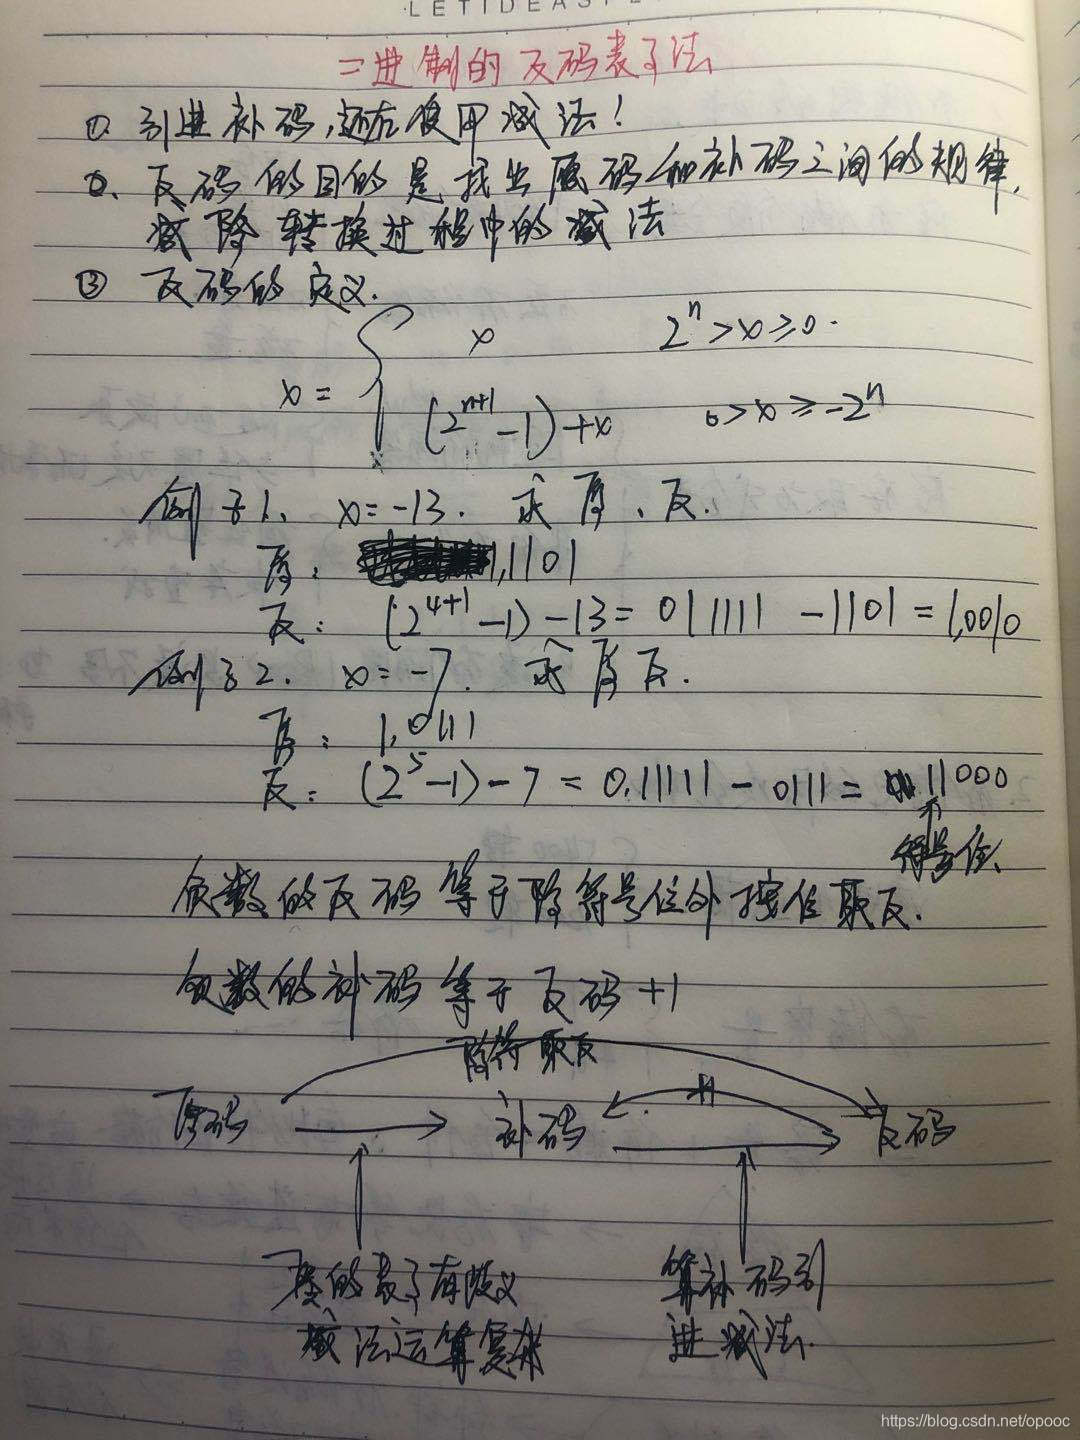 LETIDEAS
二进制的反码表示法
①. 引进补码,还在使用减法!
②. 反码的目的是找出原码和补码之间的规律,
减除转换过程中的减法
③ 反码的定义.
x = { x 2ⁿ > x ≥ 0.
(2ⁿ⁺¹ - 1) + x 0 > x ≥ -2ⁿ
例子1、 x = -13. 求原、反.
原: 1,1101
反: (2⁴⁺¹ - 1) - 13 = 011111 - 1101 = 1,0010
例子2. x = -7. 求原反.
原: 1,0111
反: (2⁵ - 1) - 7 = 0,11111 - 0111 = 11000
符号位
负数的反码等于除符号位外按位取反.
负数的补码等于反码 +1
除符取反
原码 补码 +1 反码
的表示有歧义 算补码引
减法运算复杂 进减法.
https://blog.csdn.net/opooc